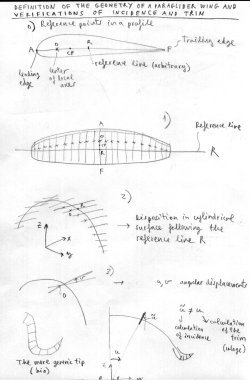 DEFINITION OF THE GEOMETRY OF A PARAGLIDER WING AND
VERIFICATIONS OF INCIDENCE AND TRIM
0) Reference points in a profile
A
O
CP
R
F
Trailing edge
leading
edge
center
of local
axes
reference line (arbitrary)
1)
A
Reference line
O
CP
R
R
F
2)
→ Disposition in cylindrical
surface following the
reference line R
z
x
y
3)
→ u, v angular displacements
O
ũ ≠ u
calculation
of incidence
calculation
of the
trim
(calage)
The more generic tip
(bio)
u